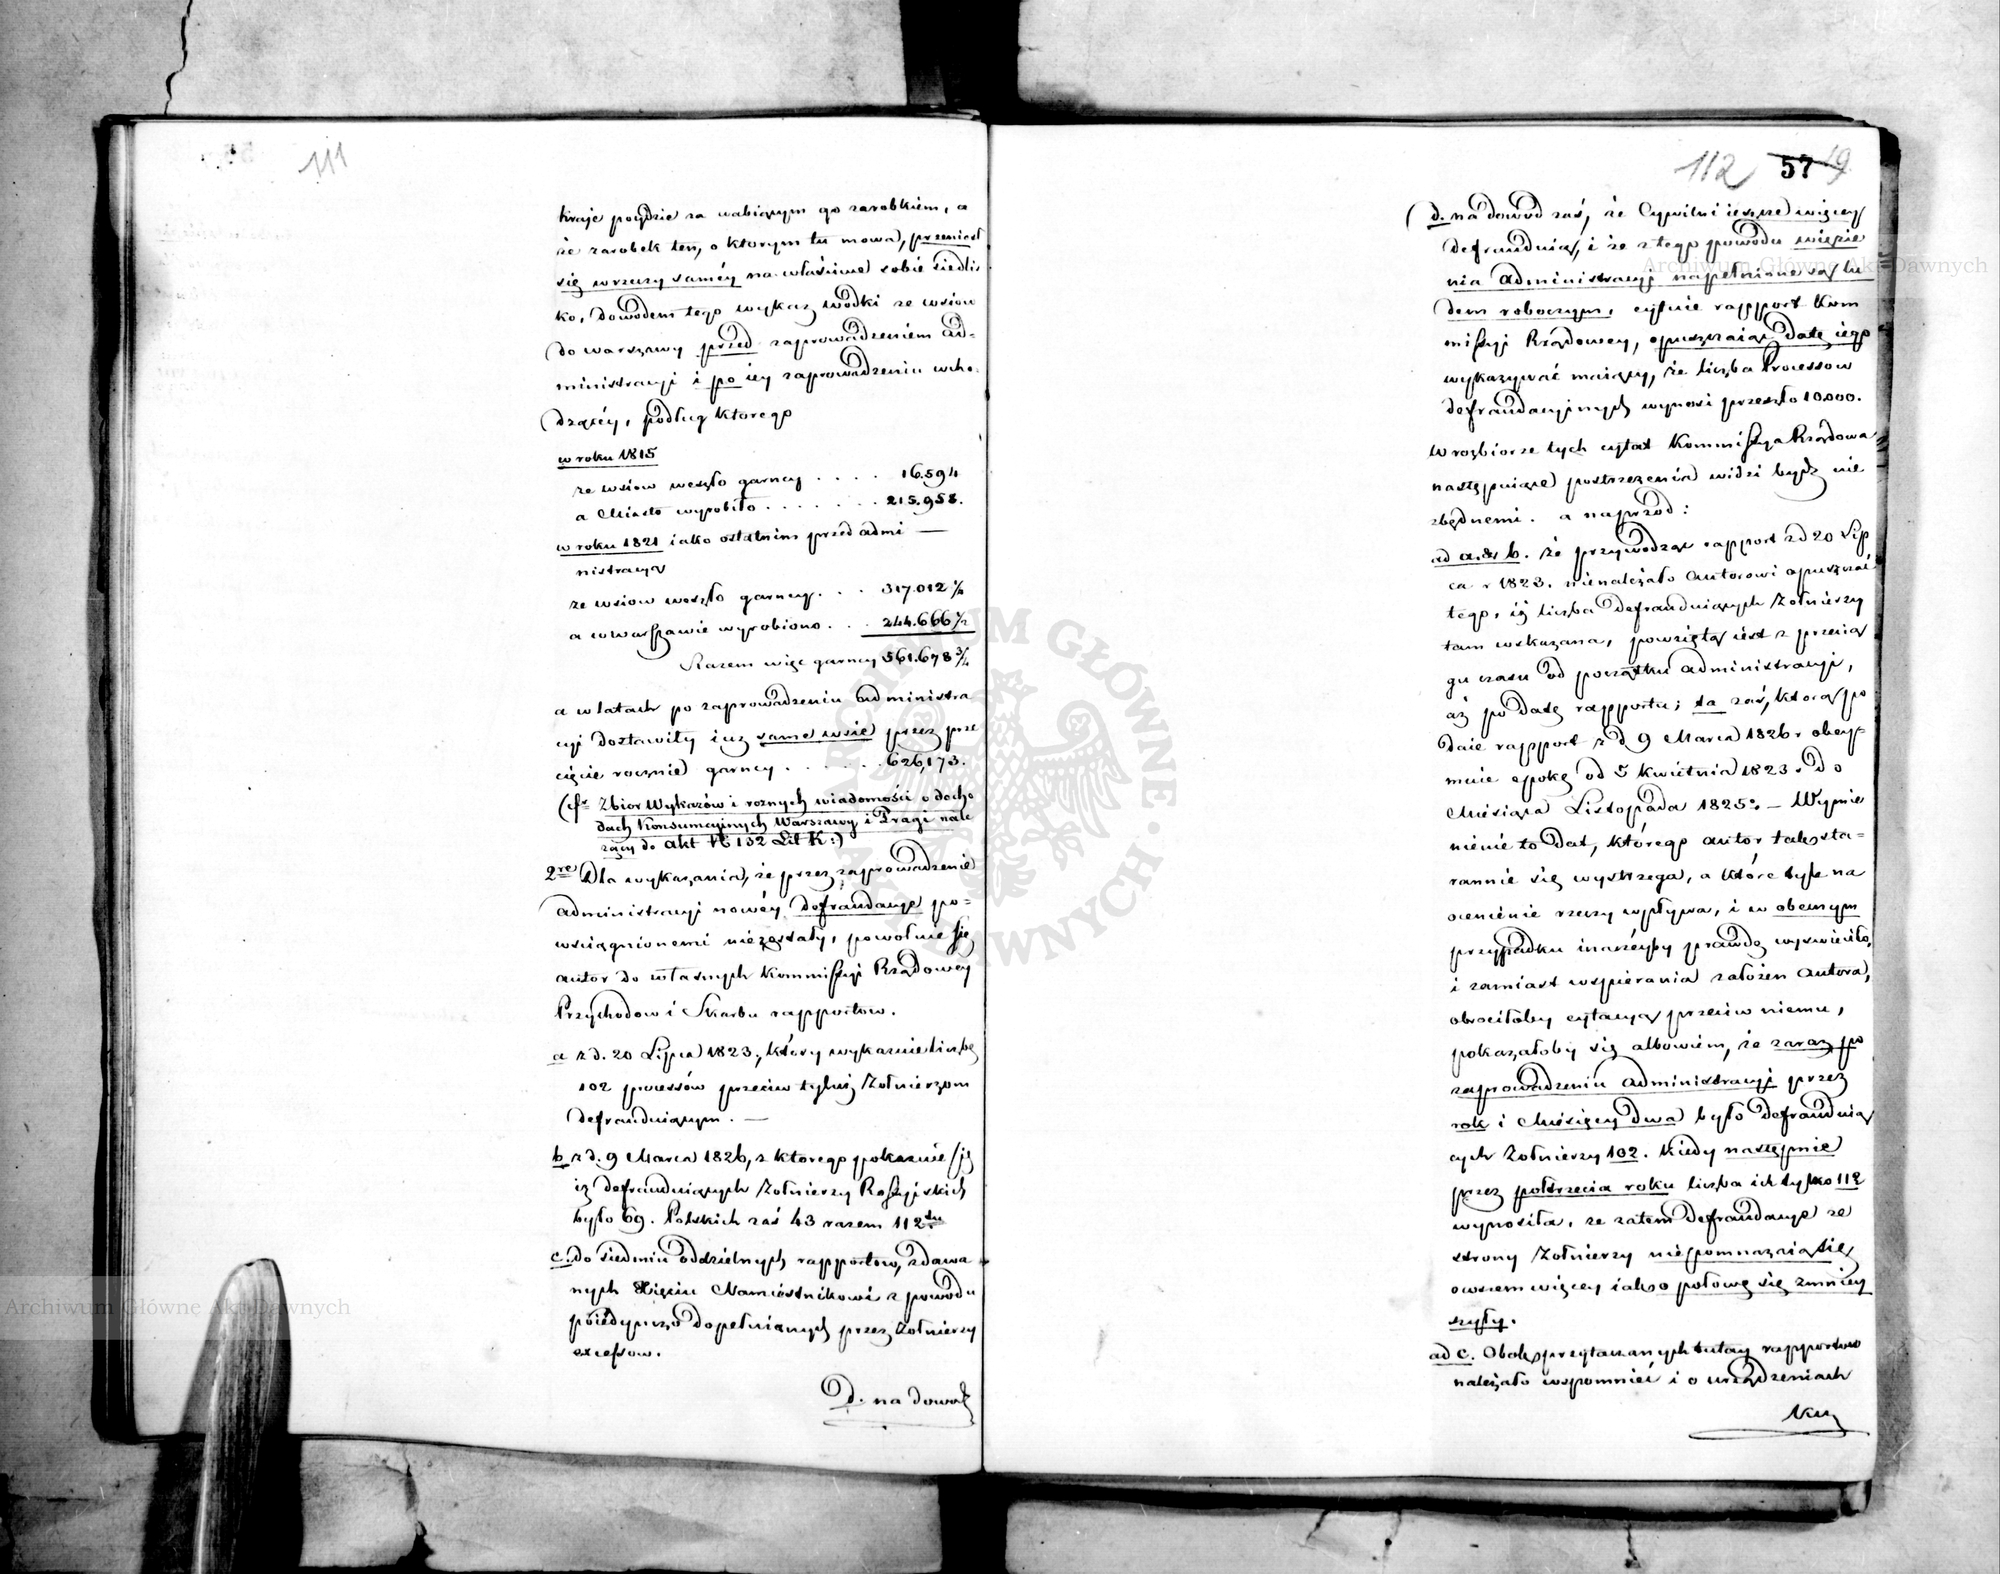 111
kraje poydzie za wabiącym go zarobkiem, a
że zarobek ten, o ktorym tu mowa, przeniosł
się wrzeczy saméy na właściwe sobie siedlis
ko, dowodem tego wykaz wódki ze wsiow
do warszawy przed zaprowadzeniem ad-
ministracyi i po iey zaprowadzeniu wcho-
dzącéy, podług ktorego
w roku 1815
ze wsiow weszło garncy . . . . 16.594
a Miasto wyrobiło . . . . . . . 215.958.
w roku 1821 iako ostatnim przed admi —
nistracyą
ze wsiow weszło garncy . . . 317.012 1/4
a w warszawie wyrobiono . . . 244.666 1/2
Razem więc garncy 561.678 3/4
a w latach po zaprowadzeniu administra
cyi dostawiły iuż same wsie przez prze
cięcie rocznie garncy . . . . . . 626,173.
(cfr Zbior Wykazów i roznych wiadomości o docho
dach Konsumcyinych Warszawy i Pragi nale
zący do akt N 152 Lit K:)
2re Dla wykazania, że przez zaprowadzenie
administracyi nowéy defraudacye po-
wsciągnionemi niezostały, powołuie się
autor do własnych Kommissyi Rządowey
Przychodow i Skarbu rapportow.
a z d. 20 Lipca 1823, który wykazuie liczbę
102 processów przeciw tyluż Żołnierzom
defrauduiącym. —
b z d. 9 Marca 1826, z ktorego pokazuie się
iż defrauduiących Żołnierzy Rossyiskich
było 69. Polskich zaś 43 razem 112tu
c. do siedmiu oddzielnych rapportow, zdawa
nych Xięciu Namiestnikowi z powodu
poiedynczo dopełnianych przez Żołnierzy
excessow.
D. na dowod
112 57 19
d. na dowod zaś, że Cywilni ieszcze więcey
defrauduią, i że z tego powodu więzie
nia administracyi napełnione są lu
dem roboczym, cytuie rapport Kom
missyi Rządowey, opuszczaiąc datę iego
wykazywać maiący, że liczba Processow
defraudacyinych wynosi przeszło 10.000.
W rozbiorze tych cytat Kommissya Rządowa
następuiące postrzeżenia widzi bydz nie
zbędnemi. a naprzod:
ad a. & b. Że przywodząc rapport z d 20 Lip
ca r 1823. nienależało Autorowi opuszczać
tego, iż liczba defrauduiących Żołnierzy
tam wskazana, powzięta iest z przecią
gu czasu od początku administracyi,
aż po datę rapportu; ta zaś, ktorą po
daie rapport z d 9 Marca 1826 r obey-
muie epokę od 5 Kwietnia 1823. do
Miesiąca Listopada 1825. — Wymie
nienie to dat, którego autor tak sta-
rannie się wystrzega, a które tyle na
ocenienie rzeczy wpływa, i w obecnym
przypadku inaczéyby prawdę wyswieciło,
i zamiast wspierania założen autora,
obrociłoby cytacyą przeciw niemu,
pokazałoby się albowiem, że zaraz po
zaprowadzeniu administracyi przez
rok i Miesięcy dwa było defrauduią
cych Żołnierzy 102. Kiedy następnie
przez półtrzecia roku liczba ich tylko 112
wynosiła, ze zatem defraudacye ze
strony Żołnierzy niepomnażaią się
owszem więcey iako połowę się zmniey
szyły.
ad c. Obok przytaczanych tutay rapportow
należało wspomnieć i o urządzeniach